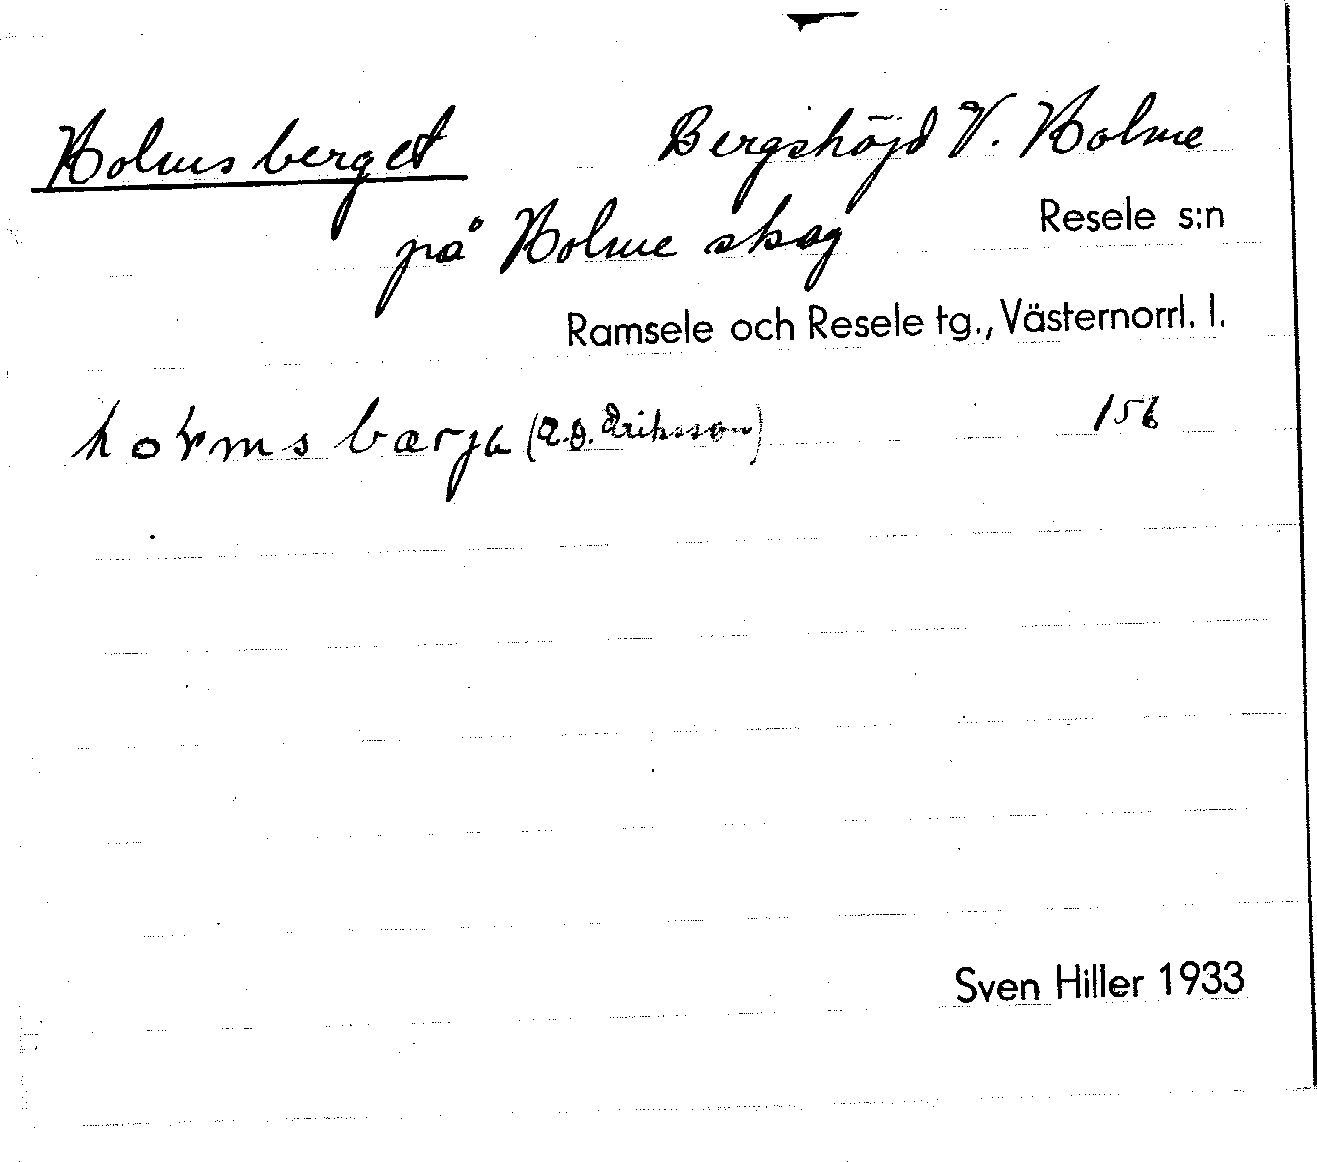 Holmsberget Bergshöjd V. Holme
på Holme skog Resele s:n
Ramsele och Resele tg., Västernorrl. l.
(A.D. Eriksson) 156
Sven Hiller 1933